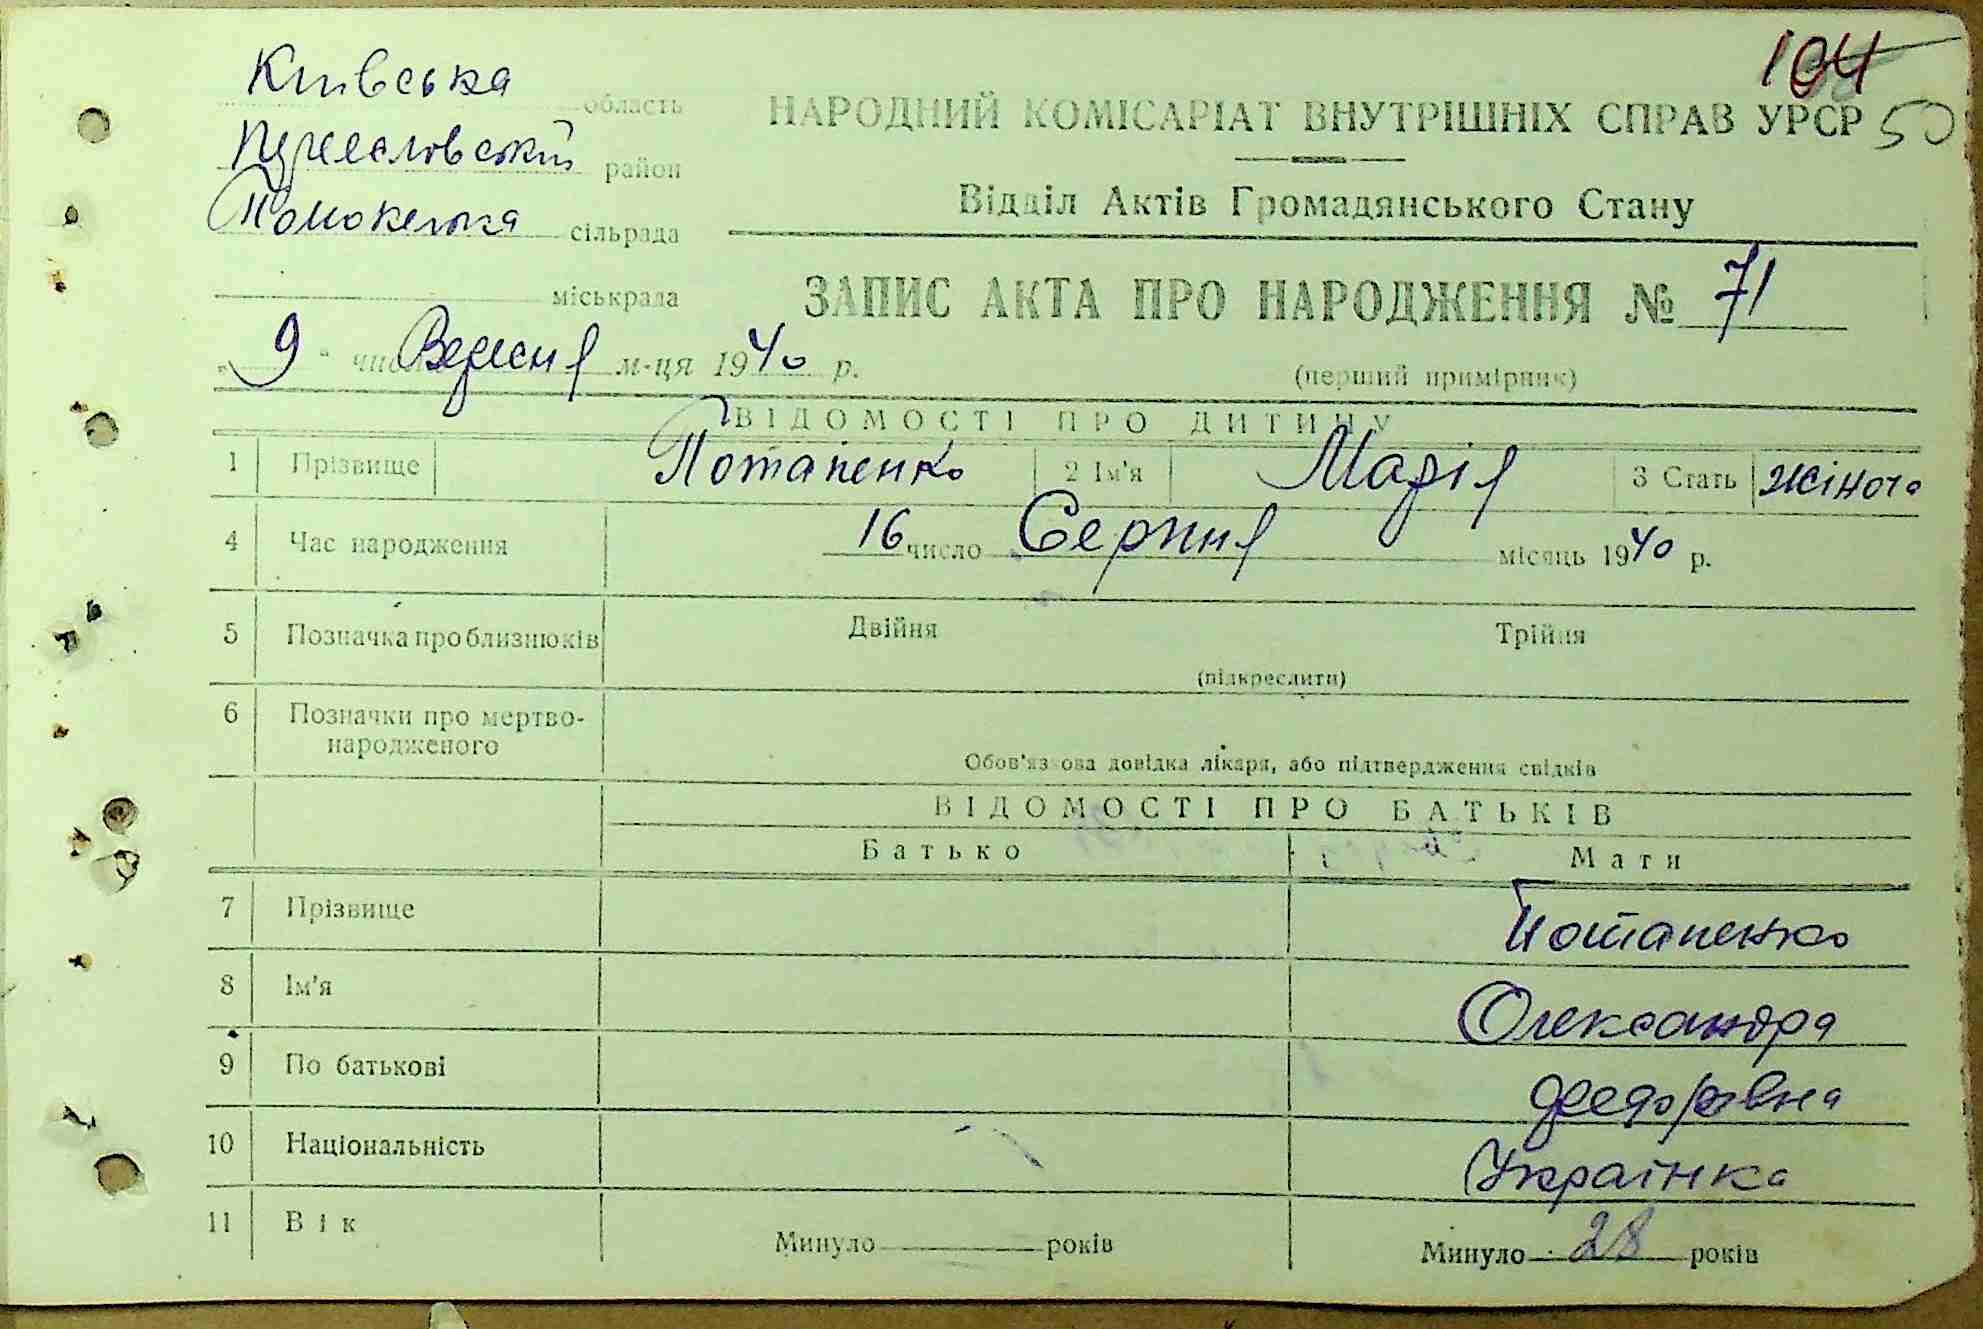 104
50
Київська область
район
сільрада
міськрада
НАРОДНИЙ КОМІСАРІАТ ВНУТРІШНІХ СПРАВ УРСР
Відділ Актів Громадянського Стану
ЗАПИС АКТА ПРО НАРОДЖЕННЯ № 71
„ 9 " числа Вересня м-ця 1940 р.
(перший примірник)
ВІДОМОСТІ ПРО ДИТИНУ
1 Прізвище Потапенко 2 Ім'я Марія 3 Стать жіноча
4 Час народження 16 число Серпня місяць 1940 р.
5 Позначка про близнюків Двійня Трійня
(підкреслити)
6 Позначки про мертво-
народженого
Обов'язкова довідка лікаря, або підтвердження свідків
ВІДОМОСТІ ПРО БАТЬКІВ
Батько Мати
7 Прізвище Потапенко
8 Ім'я Олександра
9 По батькові Федорівна
10 Національність Українка
11 Вік Минуло років Минуло 28 років